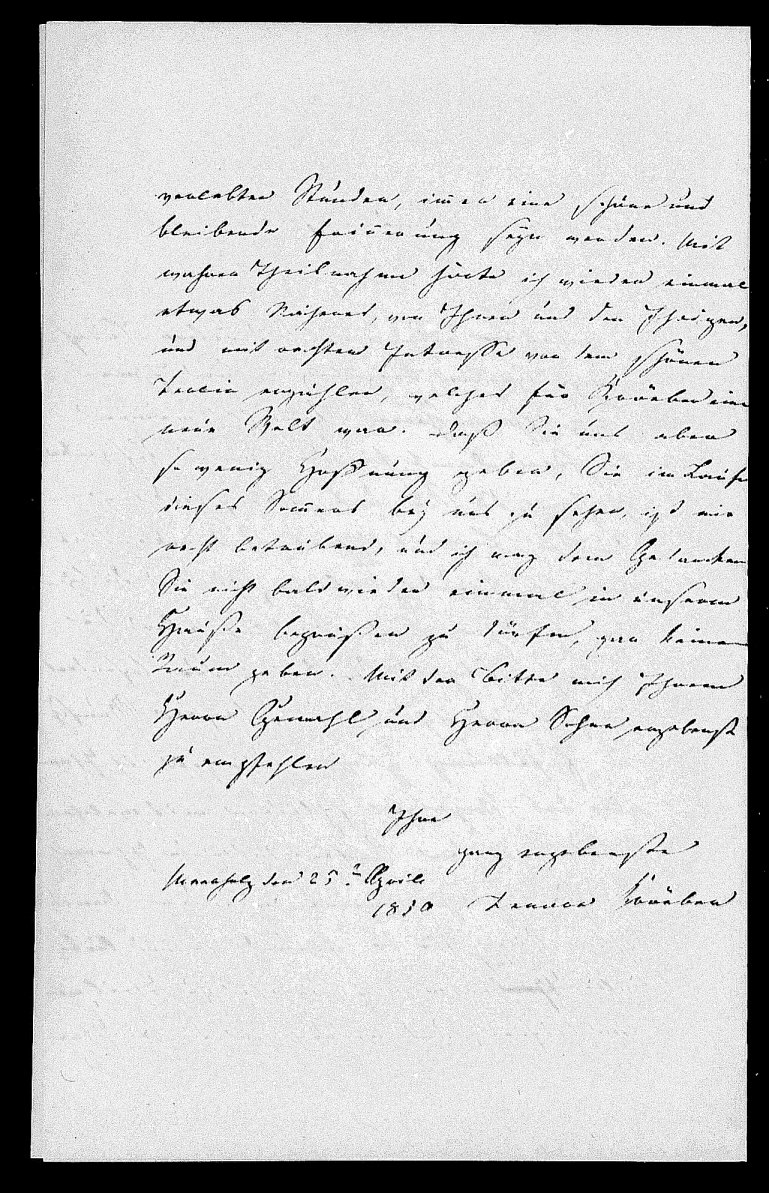 verlebten Stunden, immer eine schöne und
bleibende Erinnerung seyn werden. Mit
wahrer Theilnahme hörte ich wieder einmal
etwas Näheres, von Ihnen und den Ihrigen,
und mit rechtem Interesse von dem schönen
Berlin erzählen, welches für Kroeber eine
neue Welt war. Daß Sie uns aber
so wenig Hoffnung geben, Sie im Laufe
dieses Sommers bey uns zu sehen, ist mir
recht betrübend, und ich mag dem Gedanken
Sie nicht bald wieder einmal in unserm
Hause begrüßen zu dürfen, gar keinen
Raum geben. Mit der Bitte mich Ihrem
Herrn Gemahl und Herrn Sohne ergebenst
zu empfehlen
Ihre
ganz ergebenste
den 25 April
18 Kroeber